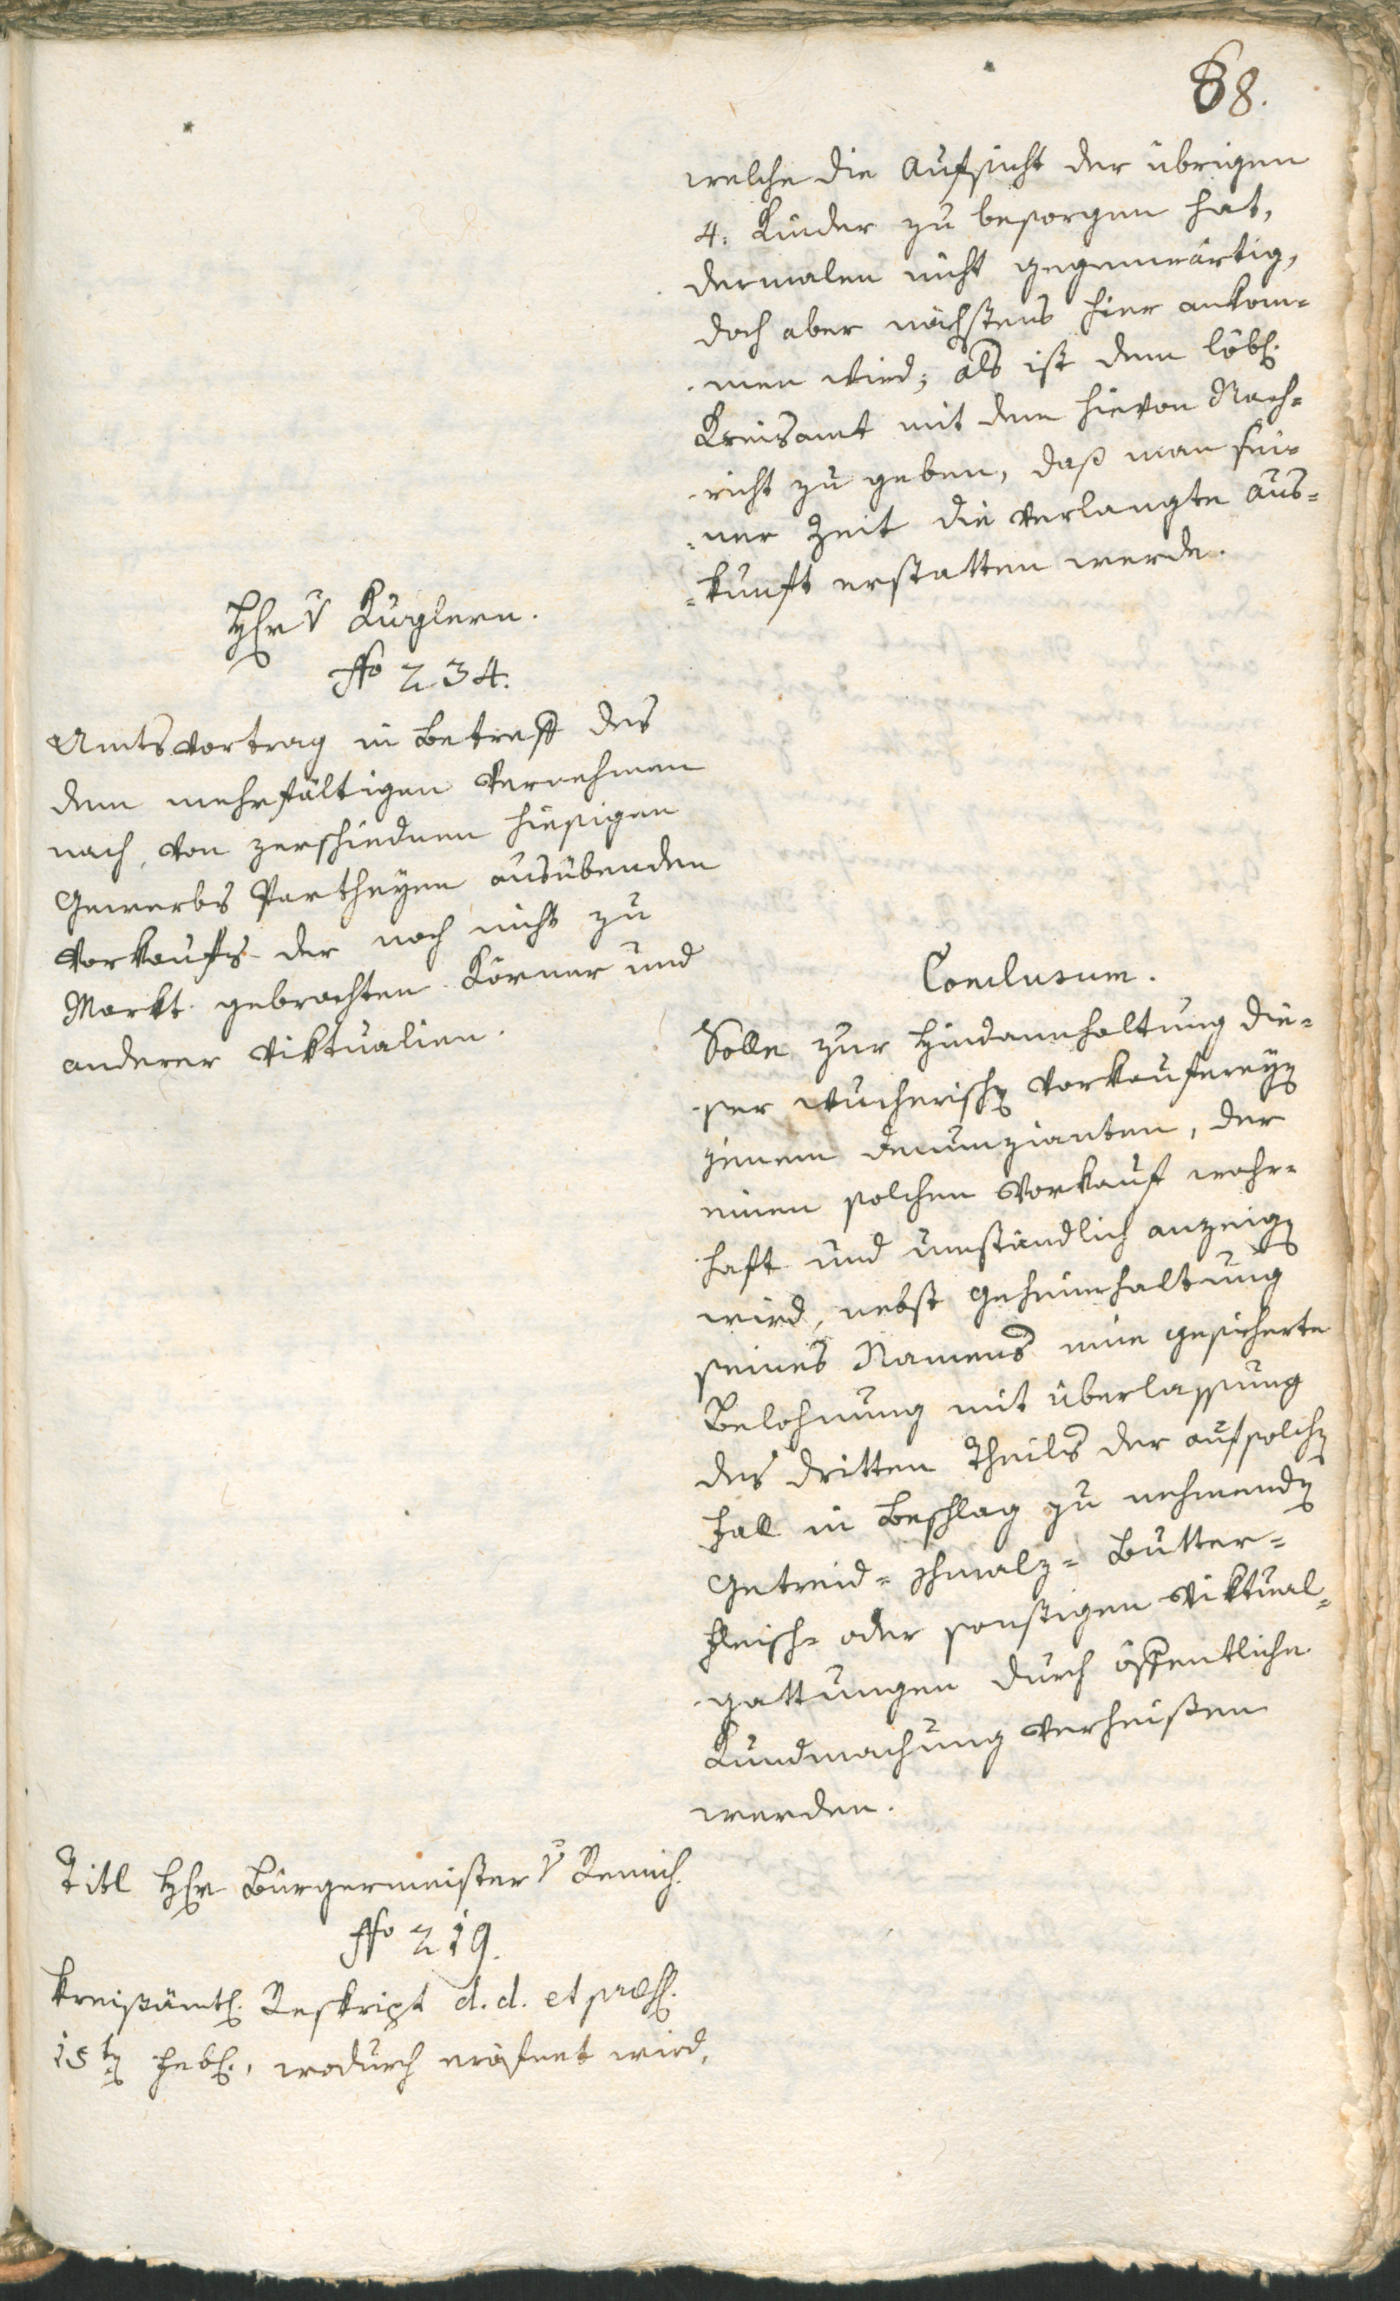 88.
welche die Aufsicht der übrigen
4. Kinder zu besorgen hat,
dermalen nicht gegenwärtig,
doch aber nächstens hier ankom=
=men wird; als ist dem löbl.
Kreisamt mit dem hievon Nach=
=richt zu geben, daß man sei=
=ner Zeit die verlangte Aus=
=kunft erstatten werde.
Hhr v Kuglern.
No 234.
Amtsvortrag in Betreff des
dem mehrfältigen Vernehmen
nach, von zerschiednen hiesigen
Gewerbs Partheyen ausübenden
Vorkaufs der noch nicht zu
Markt gebrachten Körner und
anderer Viktualien.
Conclusum.
Solle zur Hindannhaltung die=
=ser wucherischen Vorkaufereyen
jenem Denunzianten, der
einen solchen Vorkauf wahr=
=haft und umständlich anzeigen
wird, nebst Geheimhaltung
seines Namens eine gesicherte
Belohnung mit Überlassung
des dritten Theils der auf solchen
Fall in Beschlag zu nehmenden
Getreid= Schmalz= Butter=
Fleisch= oder sonstigen Viktual=
=gattungen durch öffentliche
Kundmachung verheißen
werden.
Titl Hhr Bürgermeister v Remich.
No 219.
Kreisämtl. Reskript d. d. et præs.
15ten Febr., wodurch eröfnet wird,